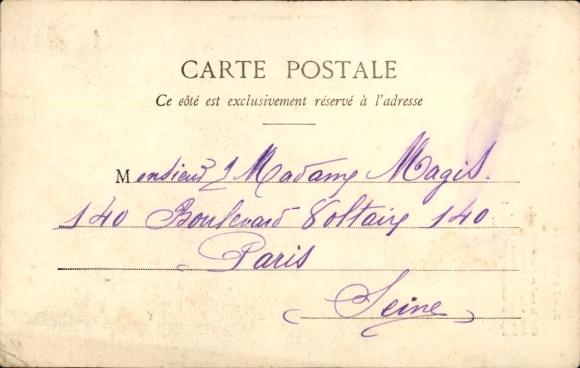 CARTE POSTALE
Ce côté est exclusivement réservé à l'adresse
Monsieur & Madame Magis.
140 Boulevard Voltaire 140
Paris
Seine